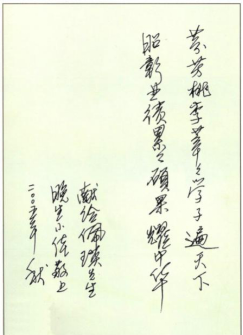 芬芳桃李莘莘学子遍天下
昭彰业绩累累硕果耀中华
献给佩瑛先生
晚生小佐敬上
二〇〇五年秋